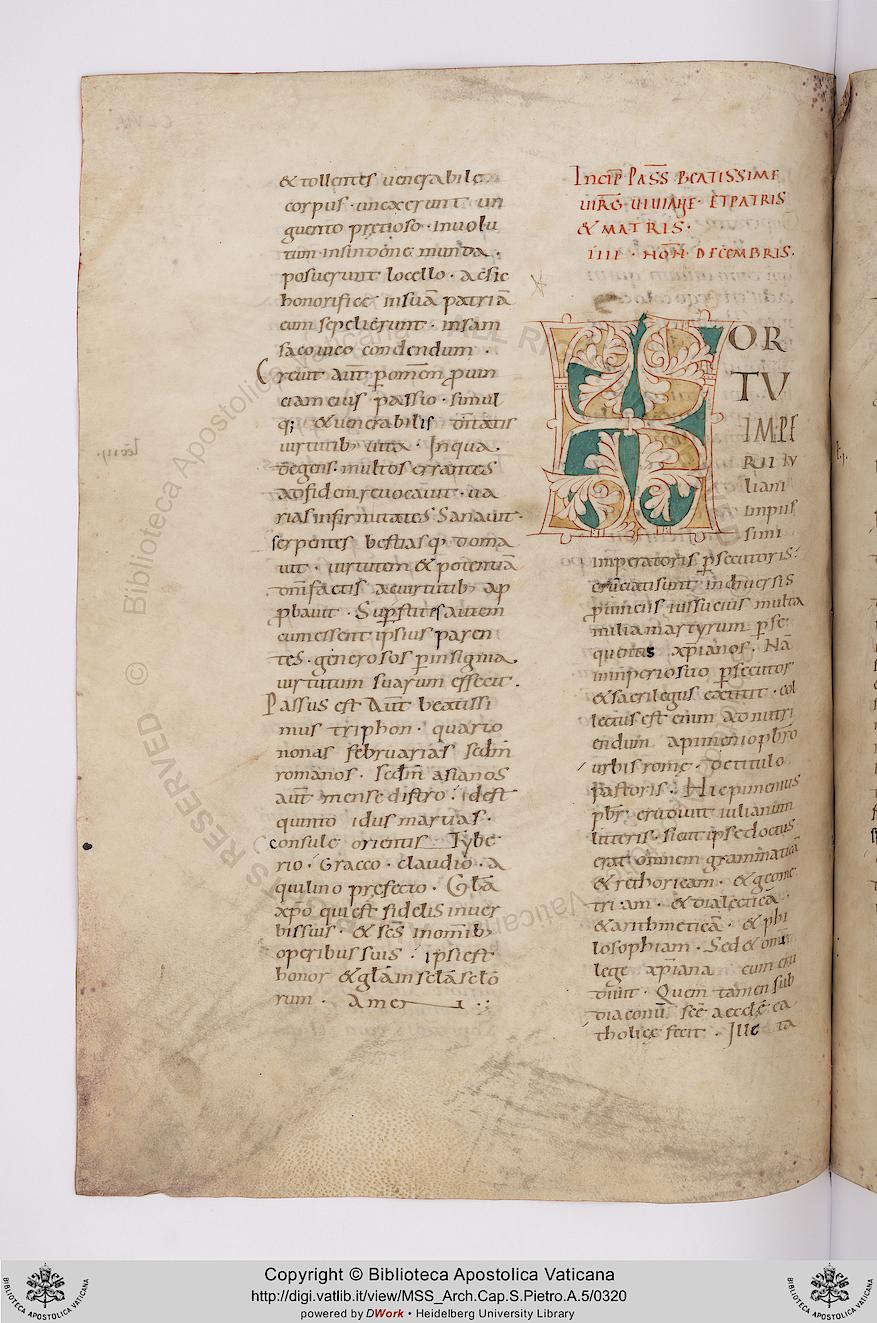 & tollentes uenerabile
corpus · unxerunt un
guento pretioso · inuolu
tum insindone munda ·
posuerunt locello · acsic
honorifice insuā patriā
cum sepelierunt · insam
saco uico condendum ·
Creuit aut̄ p omēm puin
ciam eius passio · simul
q; & uenerabilis
uirtutib; uita · Inqua ·
degens · multos errantes
adfidem reuocauit · ua
rias infirmitates Sanauit ·
serpentes bestiasq; doma
uit · uirtutem & potentiā
factis acuirtutib; ap
pbauit · Supstites autem
cum essent ipsius paren
tes · generosos pinsignia
uirtutum suarum effecit ·
Passus est aut̄ beatissi
mus triphon · quarto
nonas februarias scd̄m
romanos · scd̄m asianos
aut̄ mense distro · idest
quinto idus martias ·
Consule orientis Tybe
rio · Gracco · claudio · a
quilino prefecto · Gl̄a
xp̄o qui est fidelis inuer
bis suis · & scs̄ inomīb;
operibus suis · ipsi est
honor & gl̄a inscl̄a scl̄o
rum · amen ·
Incip̄ Pass̄ BEATISSIME
UIRḠ UIUIANE · ET PATRIS
& MATRIS ·
IIII · NON̄ DECEMBRIS ·
OR
TV
IMPE
RII IV
liani
impiis
simi
imperatoris psecutoris ·
cruciati sunt indiuersis
puinciis iussu eius multa
milia martyrum pse
quentis xpianos · Nā
inimperio suo psecutor
& sacrilegus extitit · col
lectus est enim ad nutri
endum apimenio pbr̄o
urbis rome · de titulo
Pastoris · Hic pimenius
pbr̄ · erudiuit iulianum
litteris · sicut ipse doctus
erat omnem grammaticā
& rethoricam · & geome
triam · & dialecticā
& arithmeticā · & phi
losophiam · Sed & omni
lege xpiana eum eru
diuit · Quem tamen sub
diaconū sc̄e aeccle ca
tholice fecit · Ille ita
© Biblioteca Apostolica Vaticana
ALL RIGHTS RESERVED
Copyright © Biblioteca Apostolica Vaticana
http://digi.vatlib.it/view/MSS_Arch.Cap.S.Pietro.A.5/0320
powered by DWork • Heidelberg University Library
BIBLIOTECA APOSTOLICA VATICANA
BIBLIOTECA APOSTOLICA VATICANA